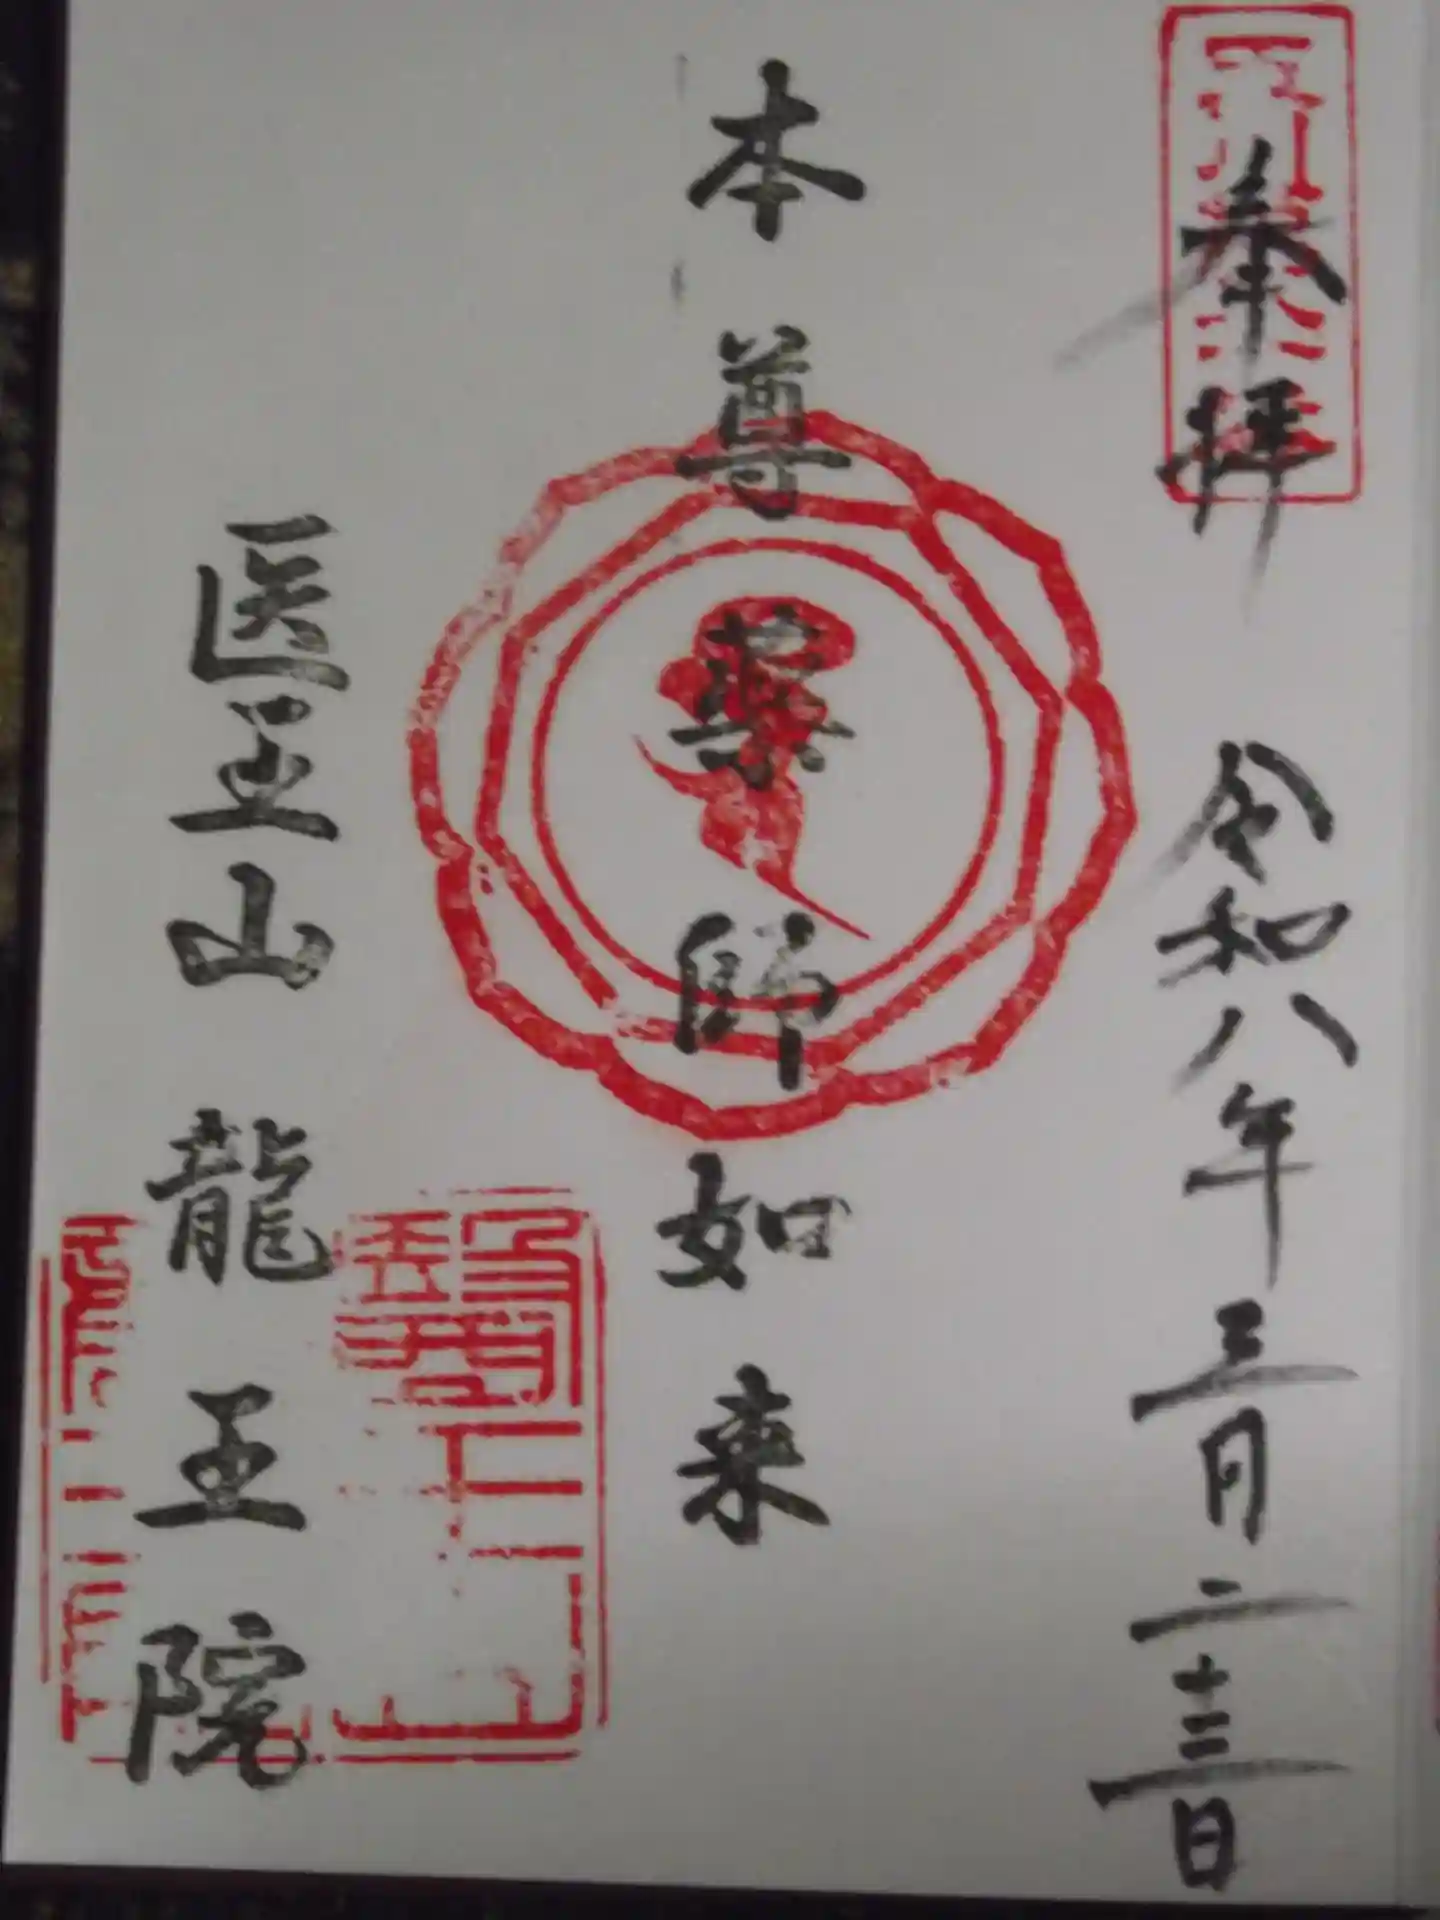 奉拝 令和八年三月二十三日
本尊薬師如来
医王山龍王院